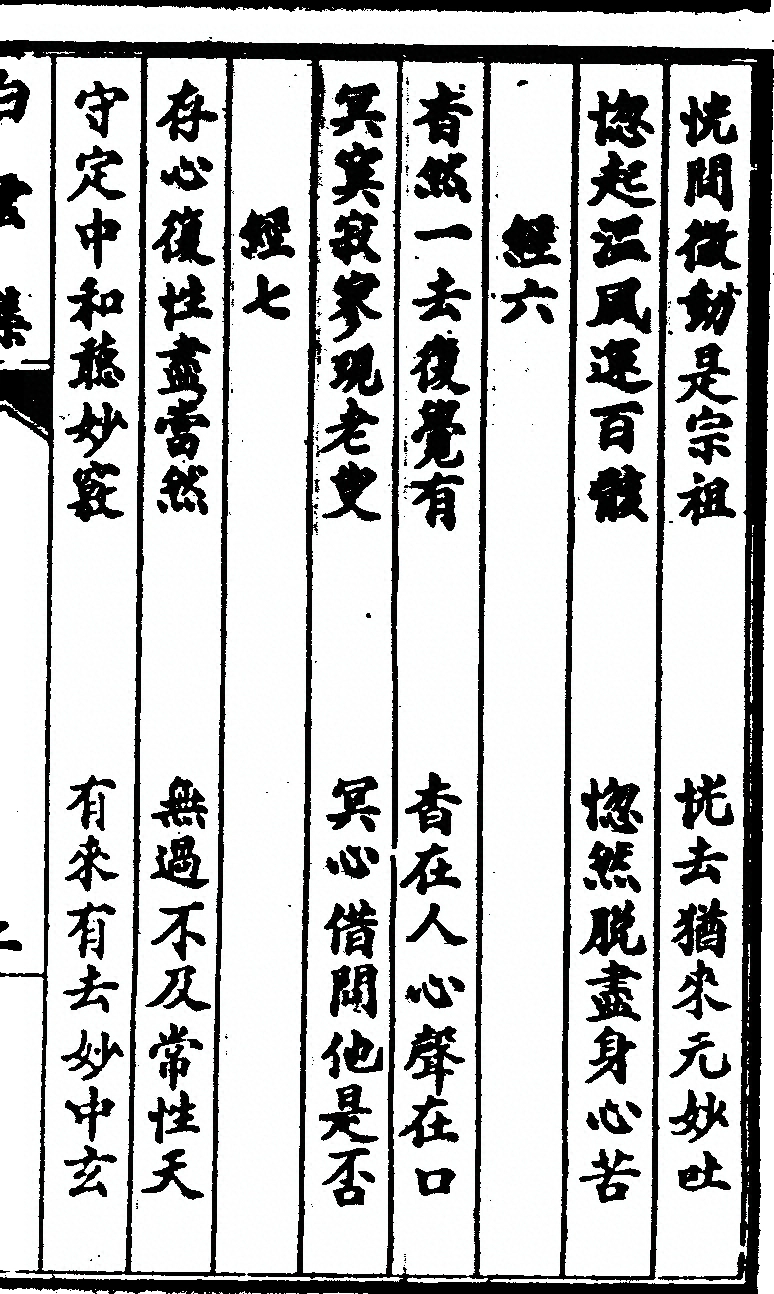 恍間微動是宗祖　恍去猶來元妙吐
惚起温風運百骸　惚然脱盡身心苦
經六
杳然一去復覺有　杳在人心聲在口
冥冥寂寥現老叟　冥心借問他是否
經七
存心復性盡當然　無過不及常性天
守定中和聽妙竅　有來有去妙中玄
白雲集